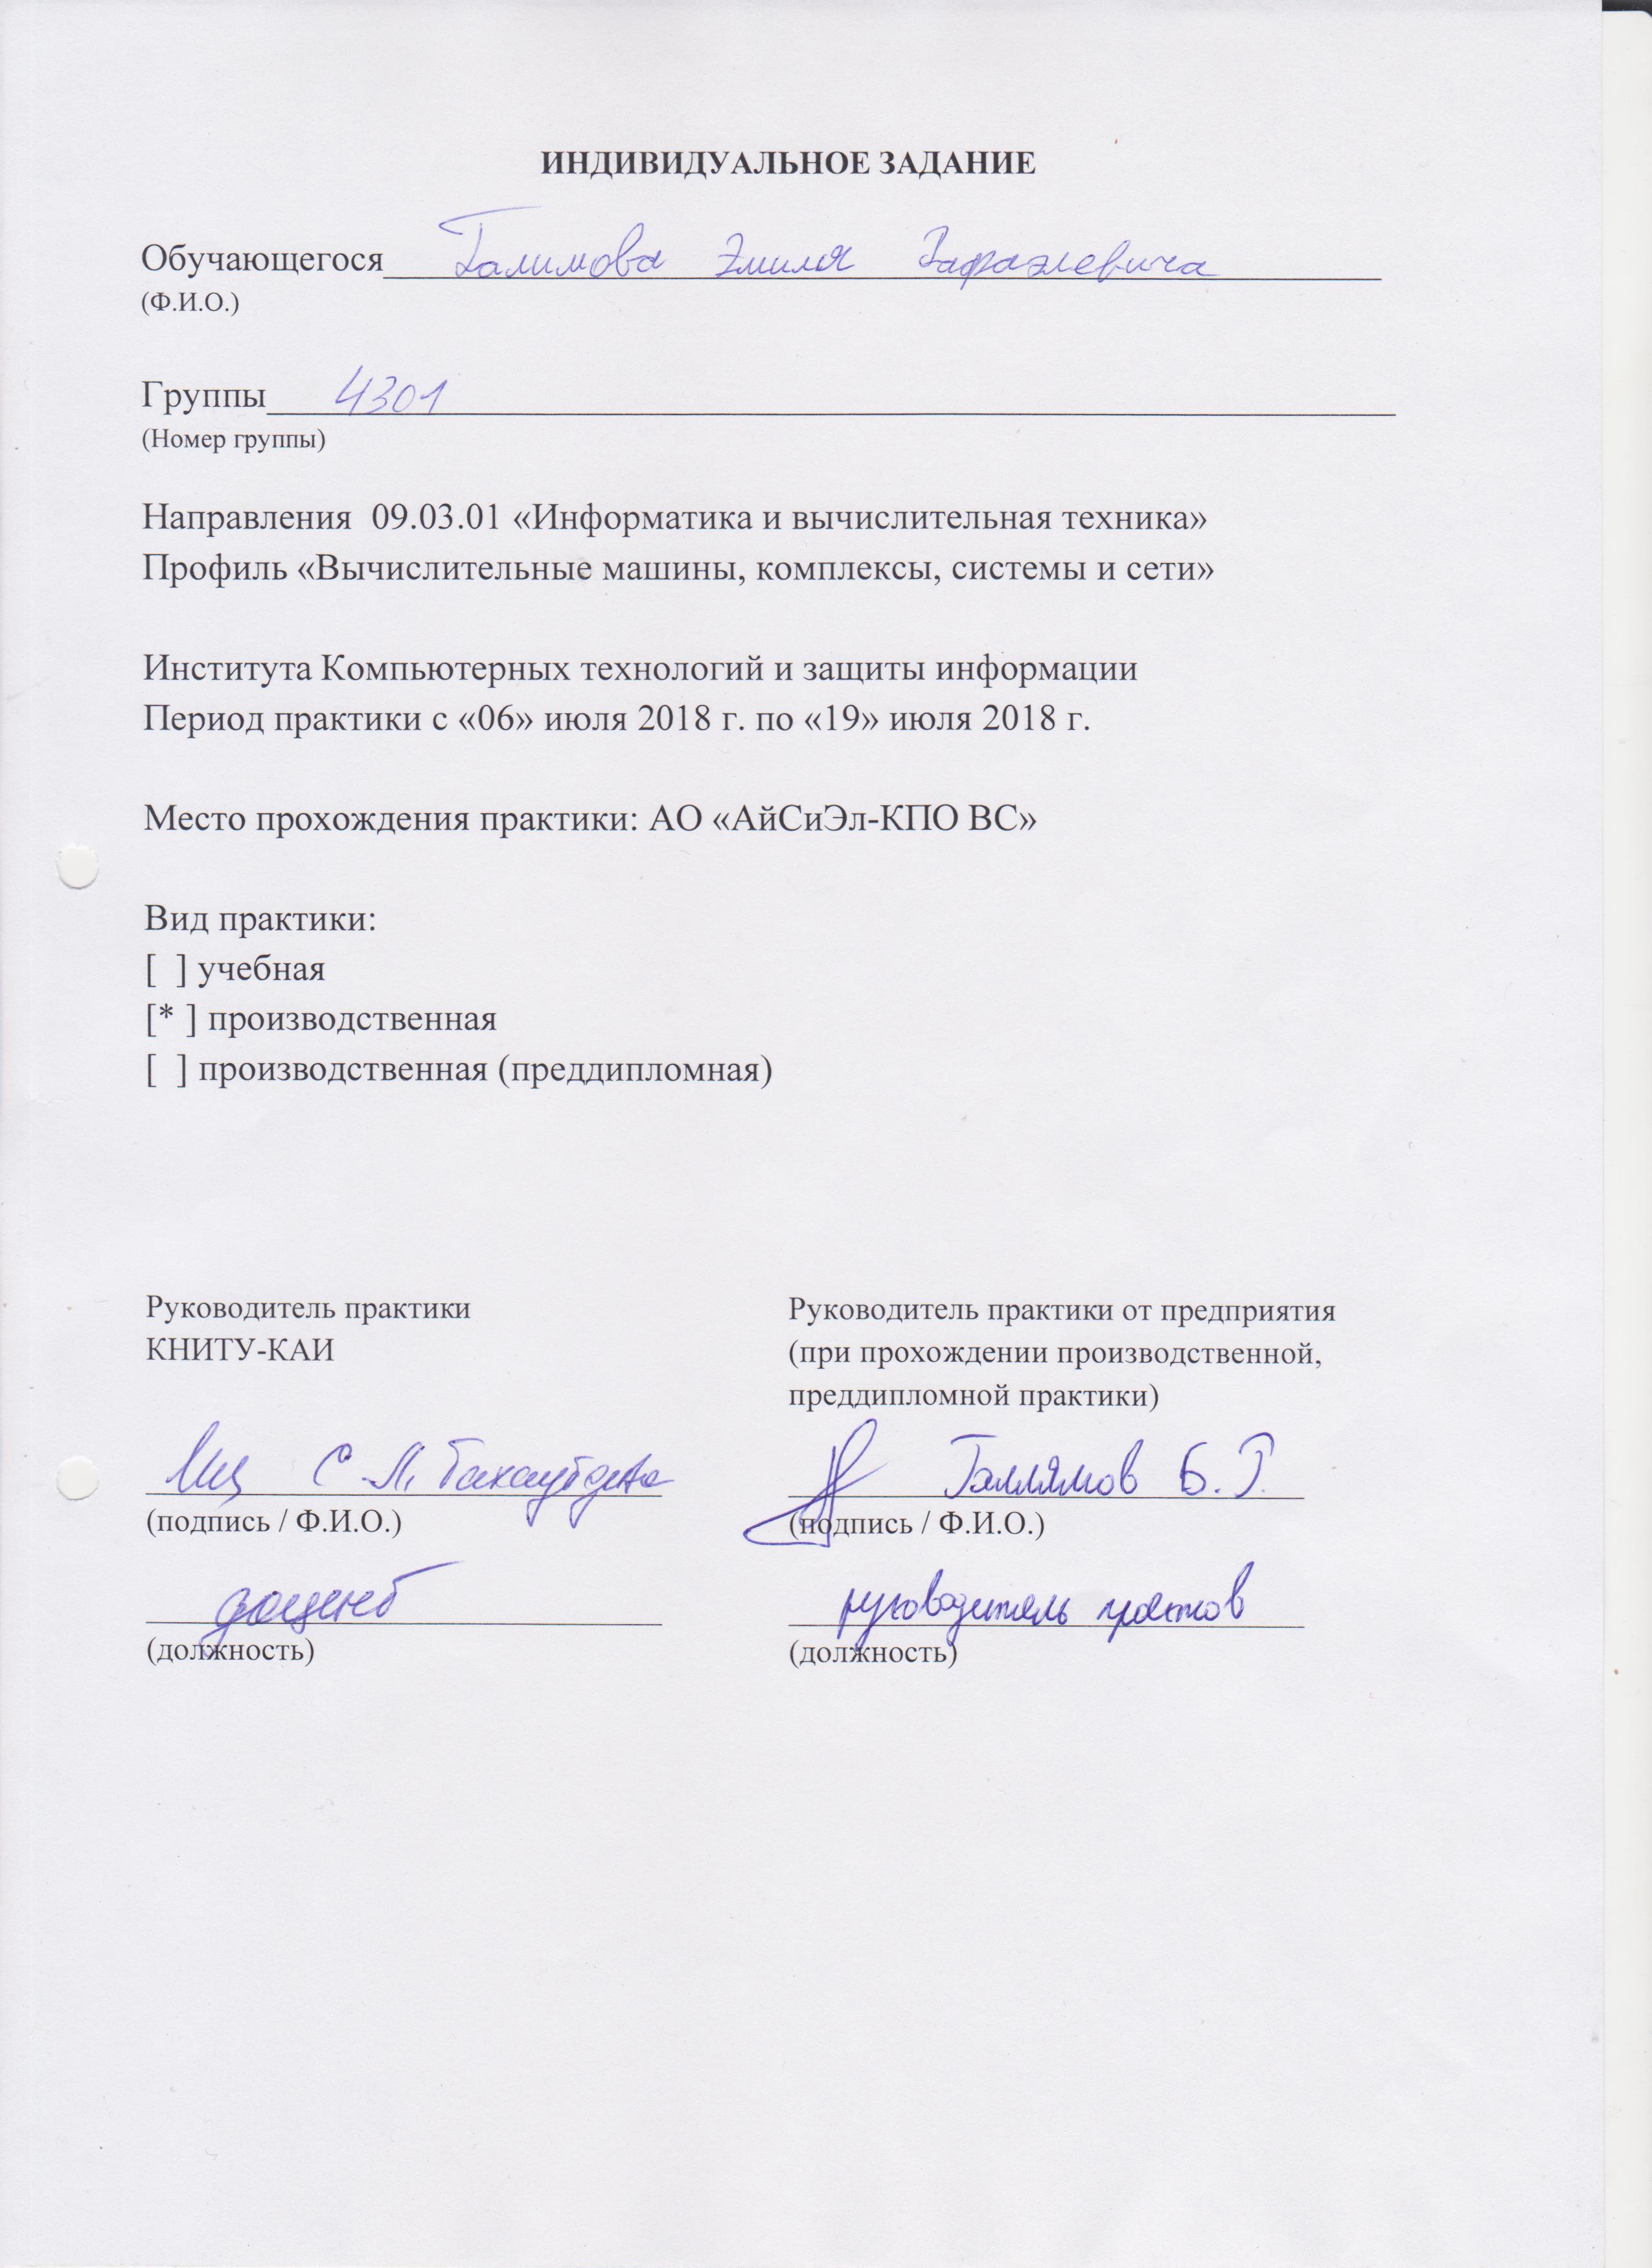 ИНДИВИДУАЛЬНОЕ ЗАДАНИЕ
Обучающегося Галимова Эмиля Рафаэлевича
(Ф.И.О.)
Группы 4301
(Номер группы)
Направления 09.03.01 «Информатика и вычислительная техника»
Профиль «Вычислительные машины, комплексы, системы и сети»
Института Компьютерных технологий и защиты информации
Период практики с «06» июля 2018 г. по «19» июля 2018 г.
Место прохождения практики: АО «АйСиЭл-КПО ВС»
Вид практики:
[ ] учебная
[* ] производственная
[ ] производственная (преддипломная)
Руководитель практики
КНИТУ-КАИ
С.М.
(подпись / Ф.И.О.)
доцент
(должность)
Руководитель практики от предприятия
(при прохождении производственной,
преддипломной практики)
Галлямов Б.Г.
(подпись / Ф.И.О.)
руководитель проектов
(должность)